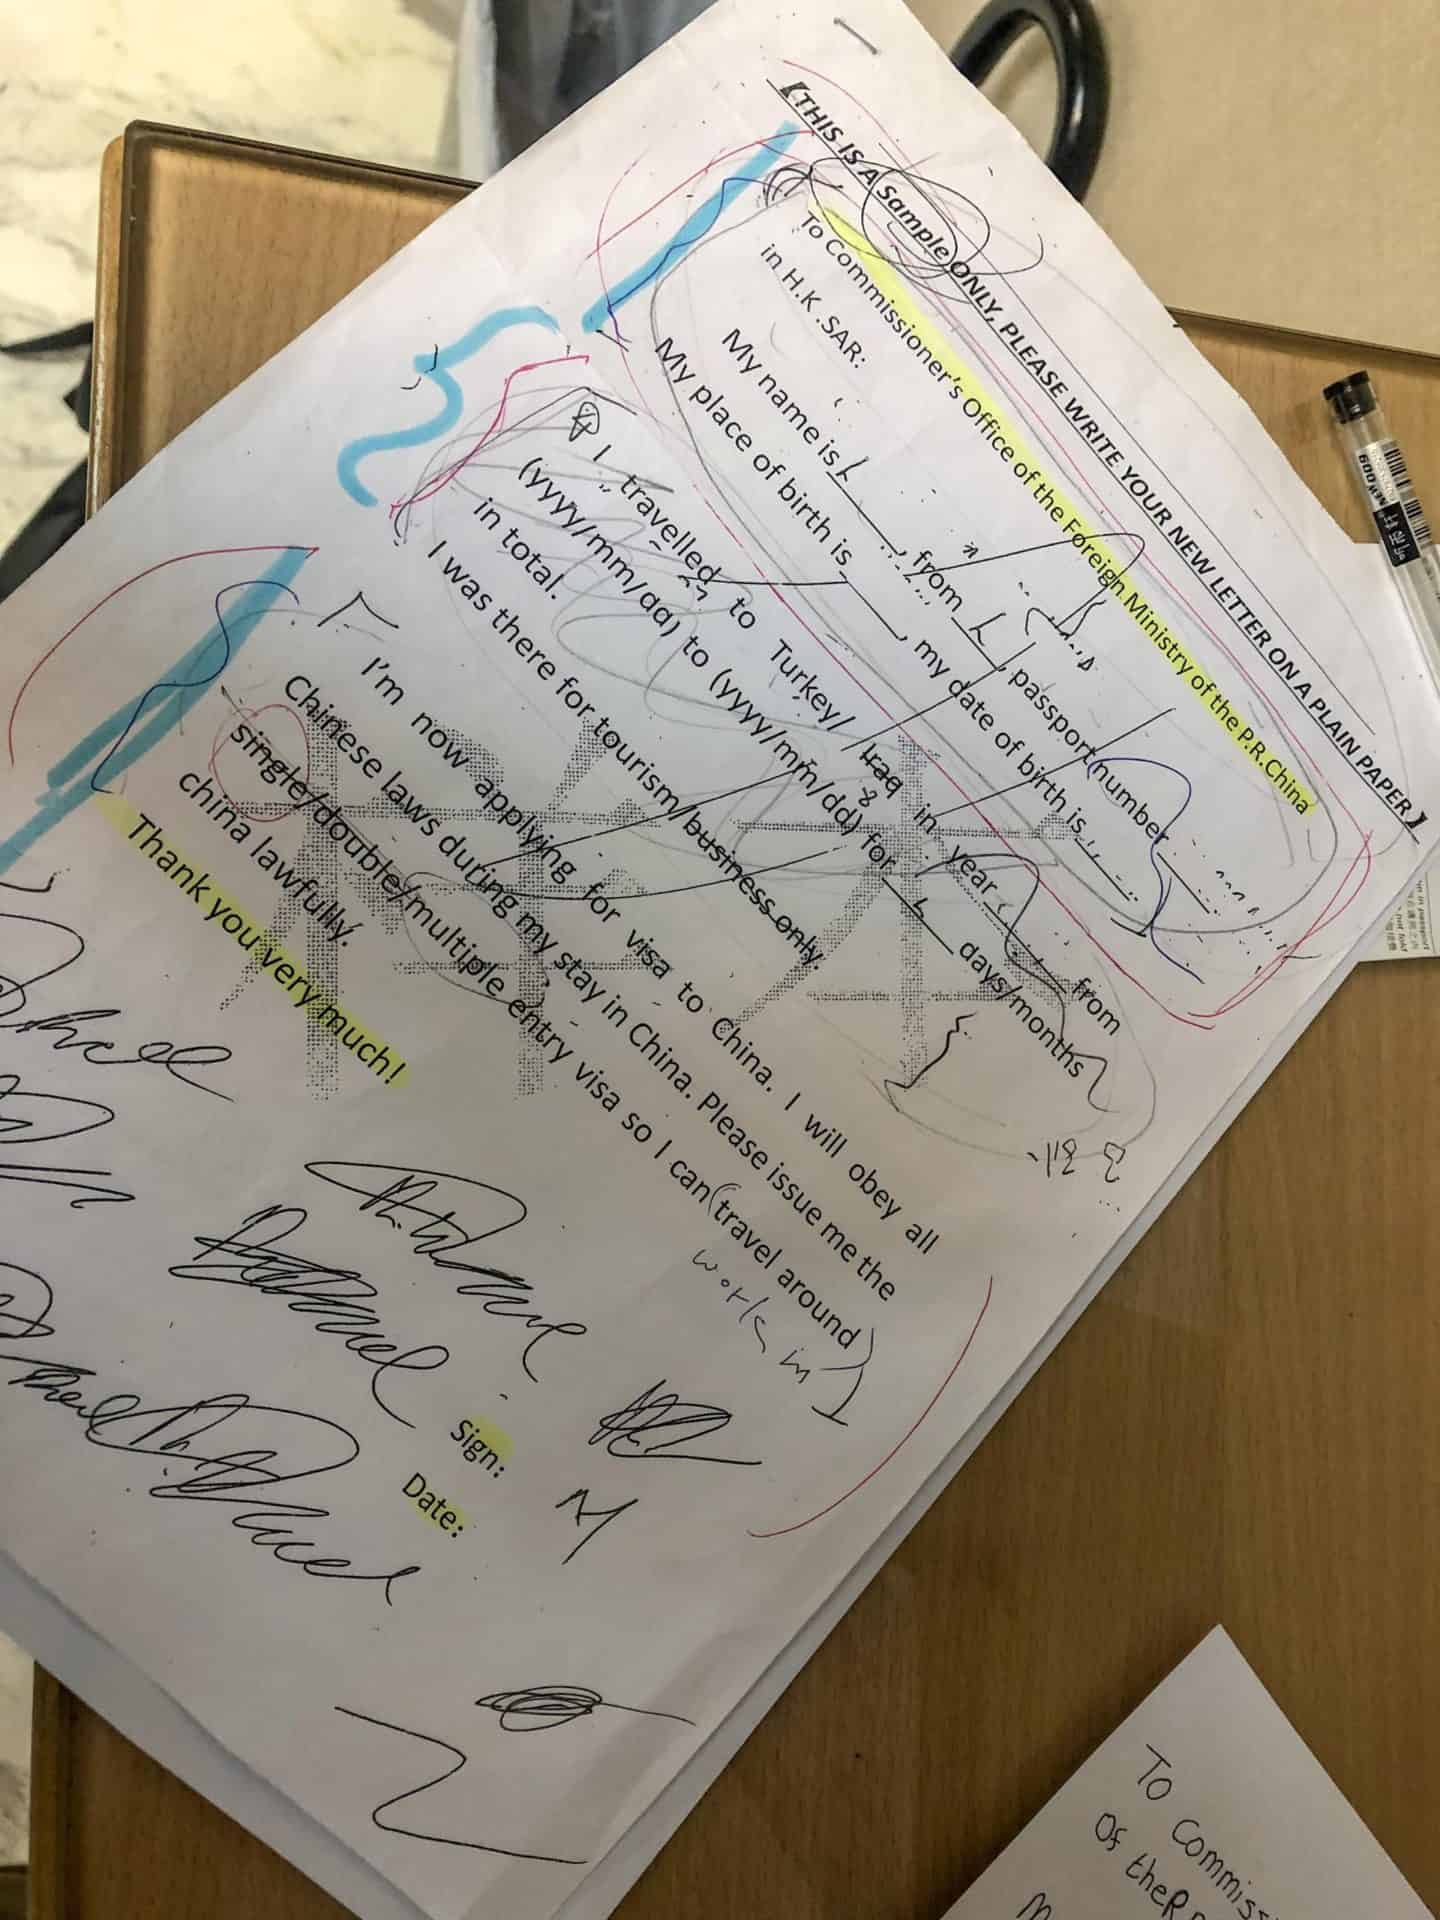 【THIS IS A Sample ONLY, PLEASE WRITE YOUR NEW LETTER ON A PLAIN PAPER】
To Commissioner's Office of the Foreign Ministry of the P.R.China
in H.K .SAR:
My name is ____, from ____, passport number ____.
My place of birth is ____, my date of birth is ____.
I travelled to Turkey/ Iraq in year ____ from
(yyyy/mm/dd) to (yyyy/mm/dd) for ____ days/months
in total.
I was there for tourism/business only.
I'm now applying for visa to China. I will obey all
Chinese laws during my stay in China. Please issue me the
single/double/multiple entry visa so I can (travel around)
work in
china lawfully.
Thank you very much!
Sign:
Date:
NEW 609
To Commiss
Of the